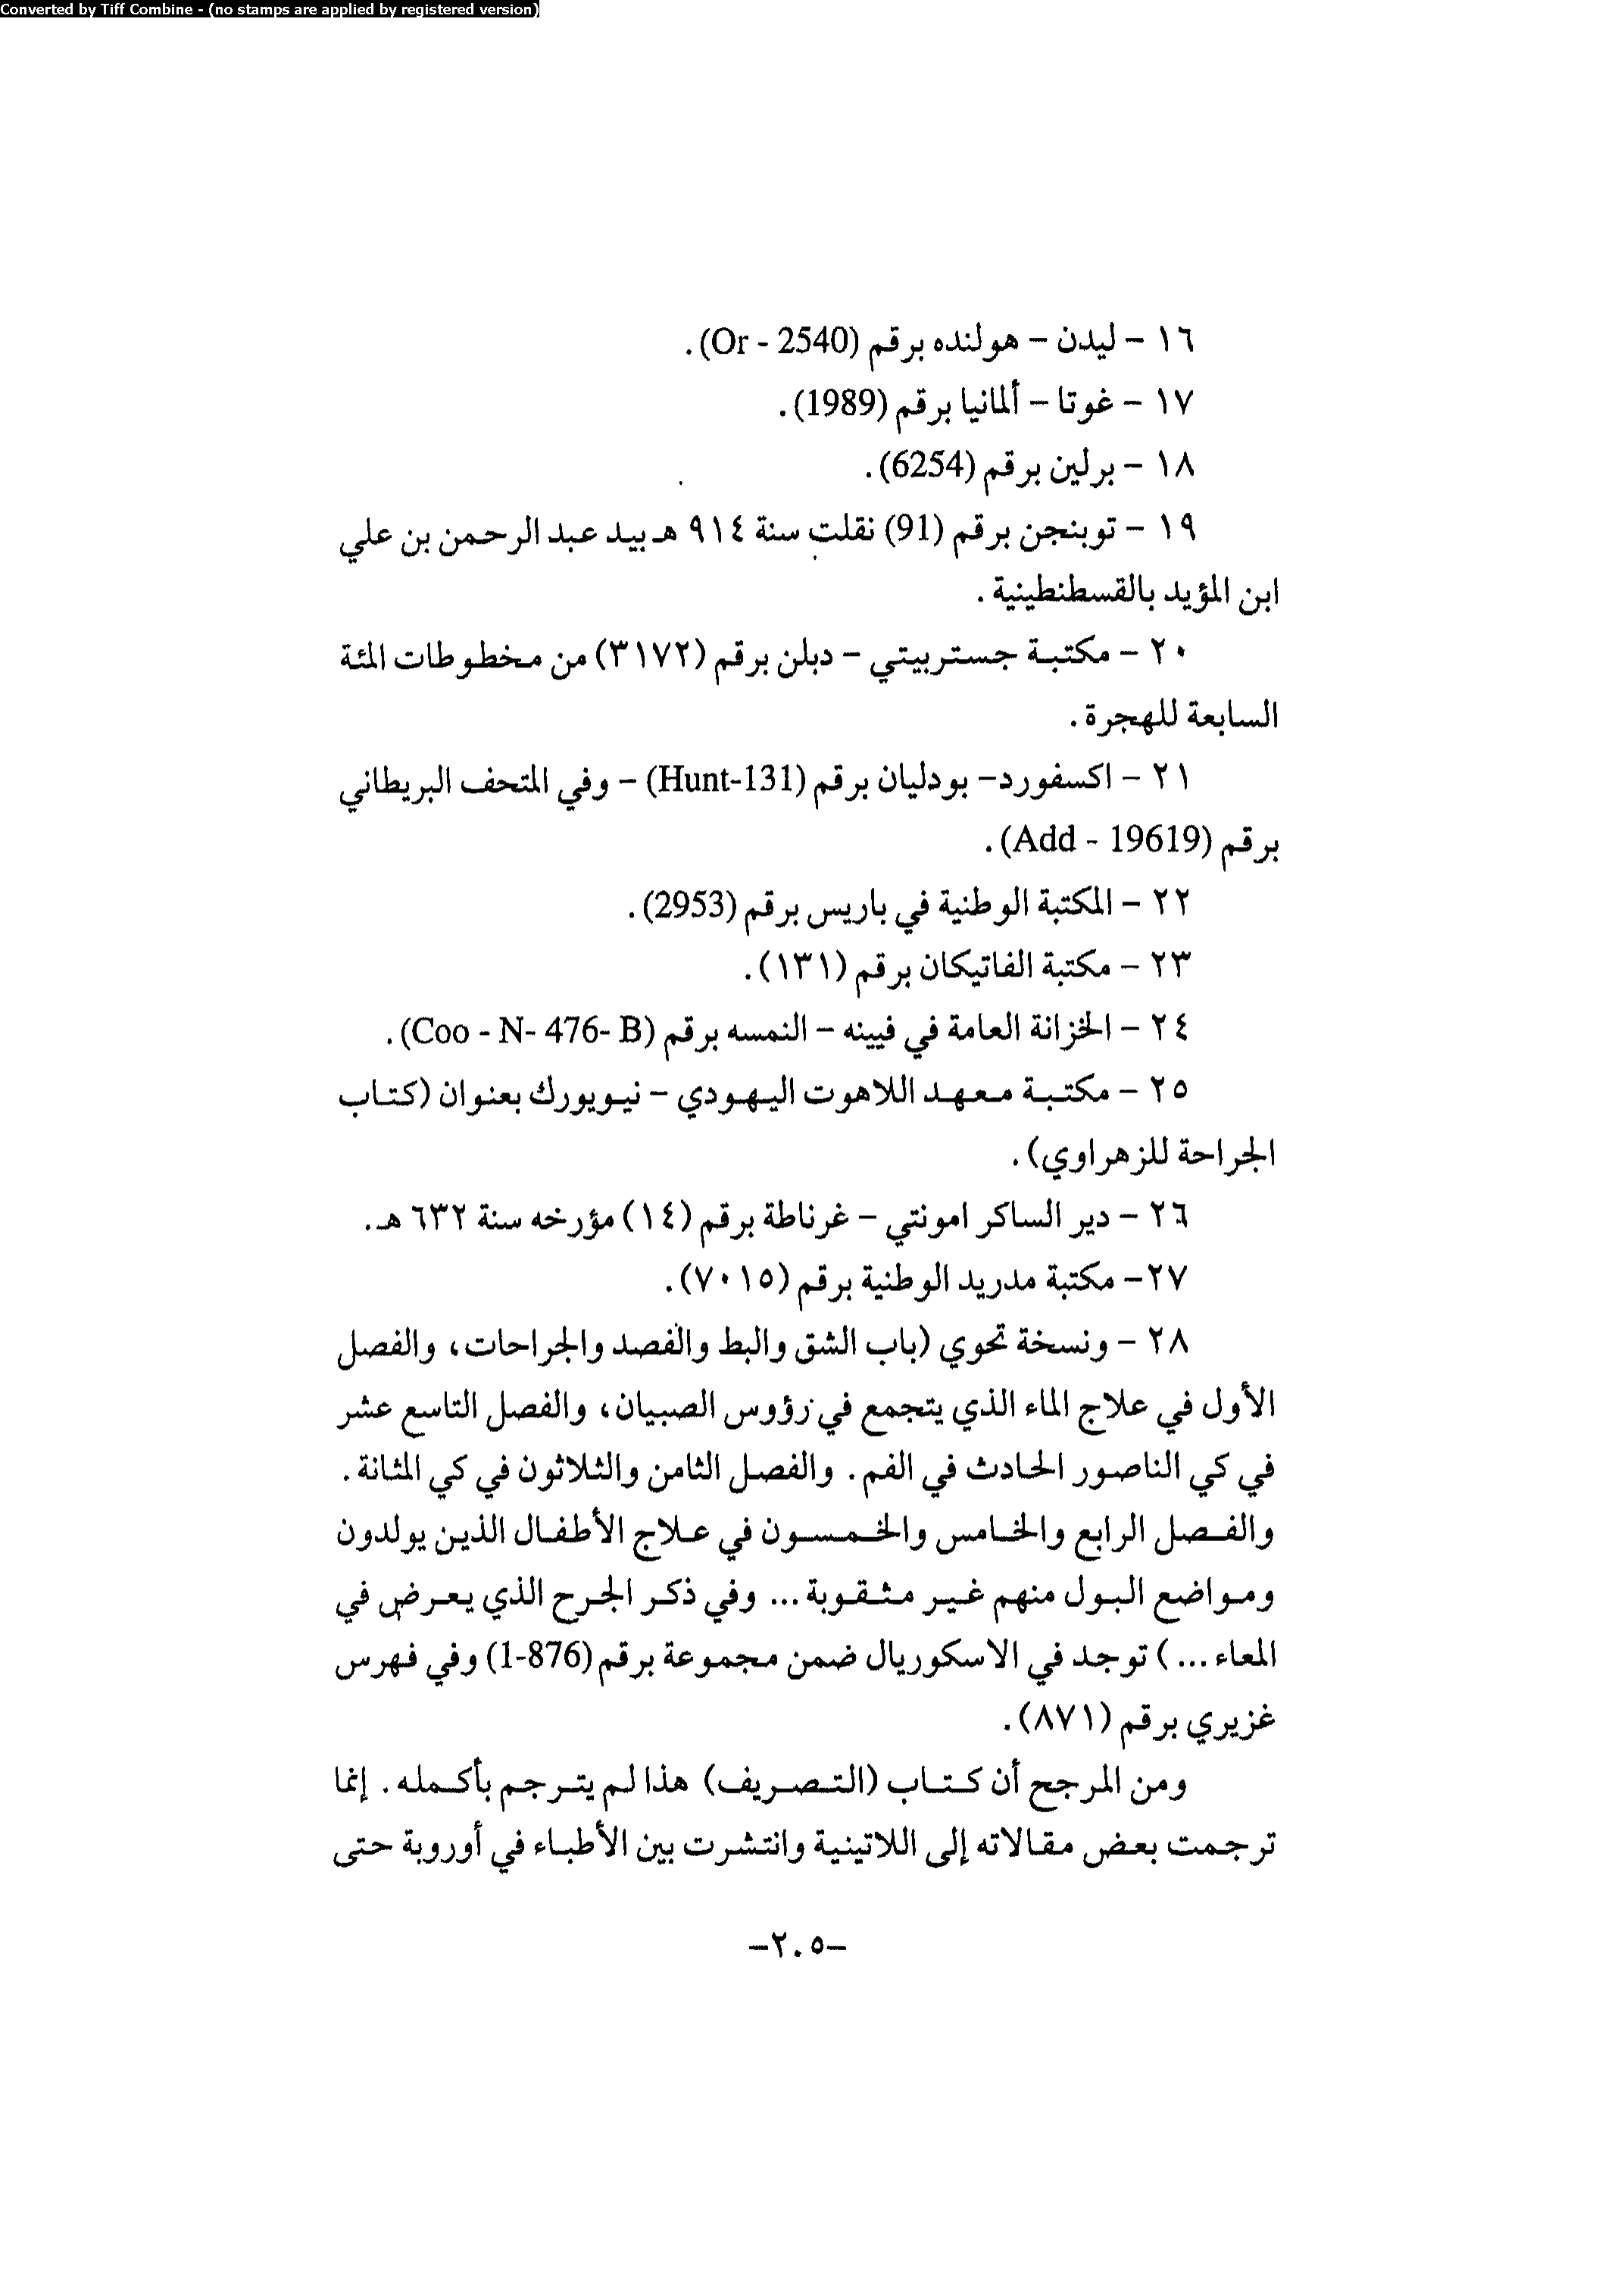 Converted by Tiff Combine - (no stamps are applied by registered version)
١٦ - ليدن - هولنده برقم (Or - 2540).
١٧ - غوتا - ألمانيا برقم (1989).
١٨ - برلين برقم (6254).
١٩ - توبنجن برقم (91) نقلت سنة ٩١٤ هـ بيد عبد الرحمن بن علي
ابن المؤيد بالقسطنطينية .
٢٠ - مكتبة جستربيتي - دبلن برقم (٣١٧٢) من مخطوطات المئة
السابعة للهجرة .
٢١ - اكسفورد- بودليان برقم (Hunt-131) - وفي المتحف البريطاني
برقم (Add - 19619) .
٢٢ - المكتبة الوطنية في باريس برقم (2953).
٢٣ - مكتبة الفاتيكان برقم (١٣١).
٢٤ - الخزانة العامة في فيينه - النمسه برقم (Coo - N- 476- B).
٢٥ - مكتبة معهد اللاهوت اليهودي - نيويورك بعنوان (كتاب
الجراحة للزهراوي).
٢٦ - دير الساكر امونتي - غرناطة برقم (١٤) مؤرخه سنة ٦٣٢ هـ.
٢٧- مكتبة مدريد الوطنية برقم (٧٠١٥).
٢٨ - ونسخة تحوي (باب الشق والبط والفصد والجراحات، والفصل
الأول في علاج الماء الذي يتجمع في رؤوس الصبيان، والفصل التاسع عشر
في كي الناصور الحادث في الفم . والفصل الثامن والثلاثون في كي المثانة .
والفصل الرابع والخامس والخمسون في علاج الأطفال الذين يولدون
ومواضع البول منهم غير مثقوبة ... وفي ذكر الجرح الذي يعرض في
المعاء ...) توجد في الاسكوريال ضمن مجموعة برقم (876-1) وفي فهرس
غزيري برقم (٨٧١).
ومن المرجح أن كتاب (التصريف) هذا لم يترجم بأكمله . إنما
ترجمت بعض مقالاته إلى اللاتينية وانتشرت بين الأطباء في أوروبة حتى
-٢٠٥-